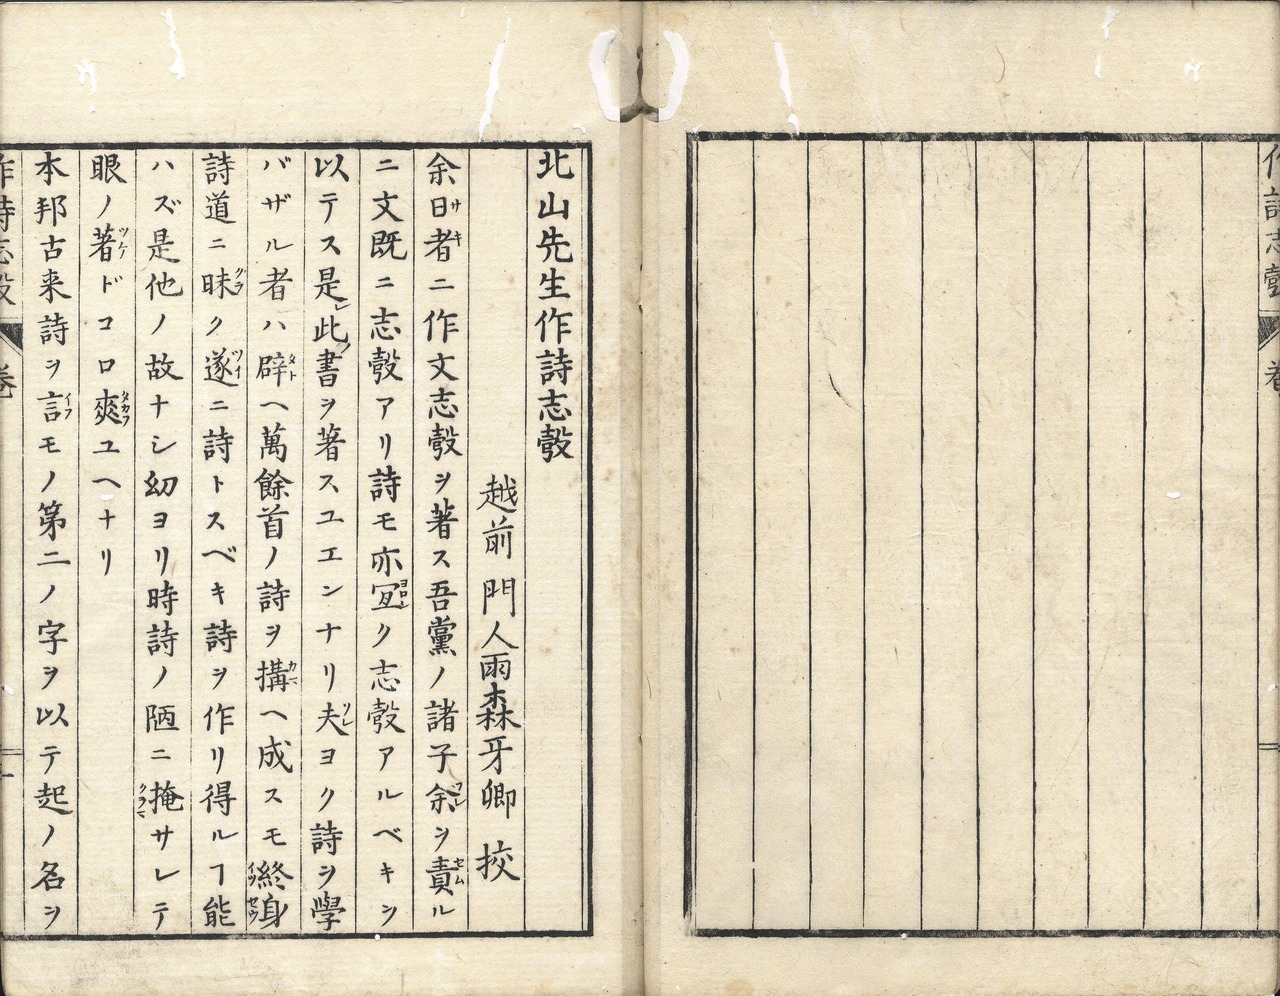 作詩志彀
卷
北山先生作詩志彀
越前 門人雨森牙卿 挍
余日者ニ作文志彀ヲ著ス吾黨ノ諸子余ヲ責ル
ニ文既ニ志彀アリ詩モ亦宜ク志彀アルベキヲ
以テス是此書ヲ著スユエンナリ夫ヨク詩ヲ學
バザル者ハ辟ヘ萬餘首ノ詩ヲ搆ヘ成スモ終身
詩道ニ昧ク遂ニ詩トスベキ詩ヲ作リ得ルヿ能
ハズ是他ノ故ナシ幼ヨリ時詩ノ陋ニ掩サレテ
眼ノ著ドコロ爽ユヘナリ
本邦古来詩ヲ言モノ第二ノ字ヲ以テ起ノ名ヲ
作詩志彀
卷